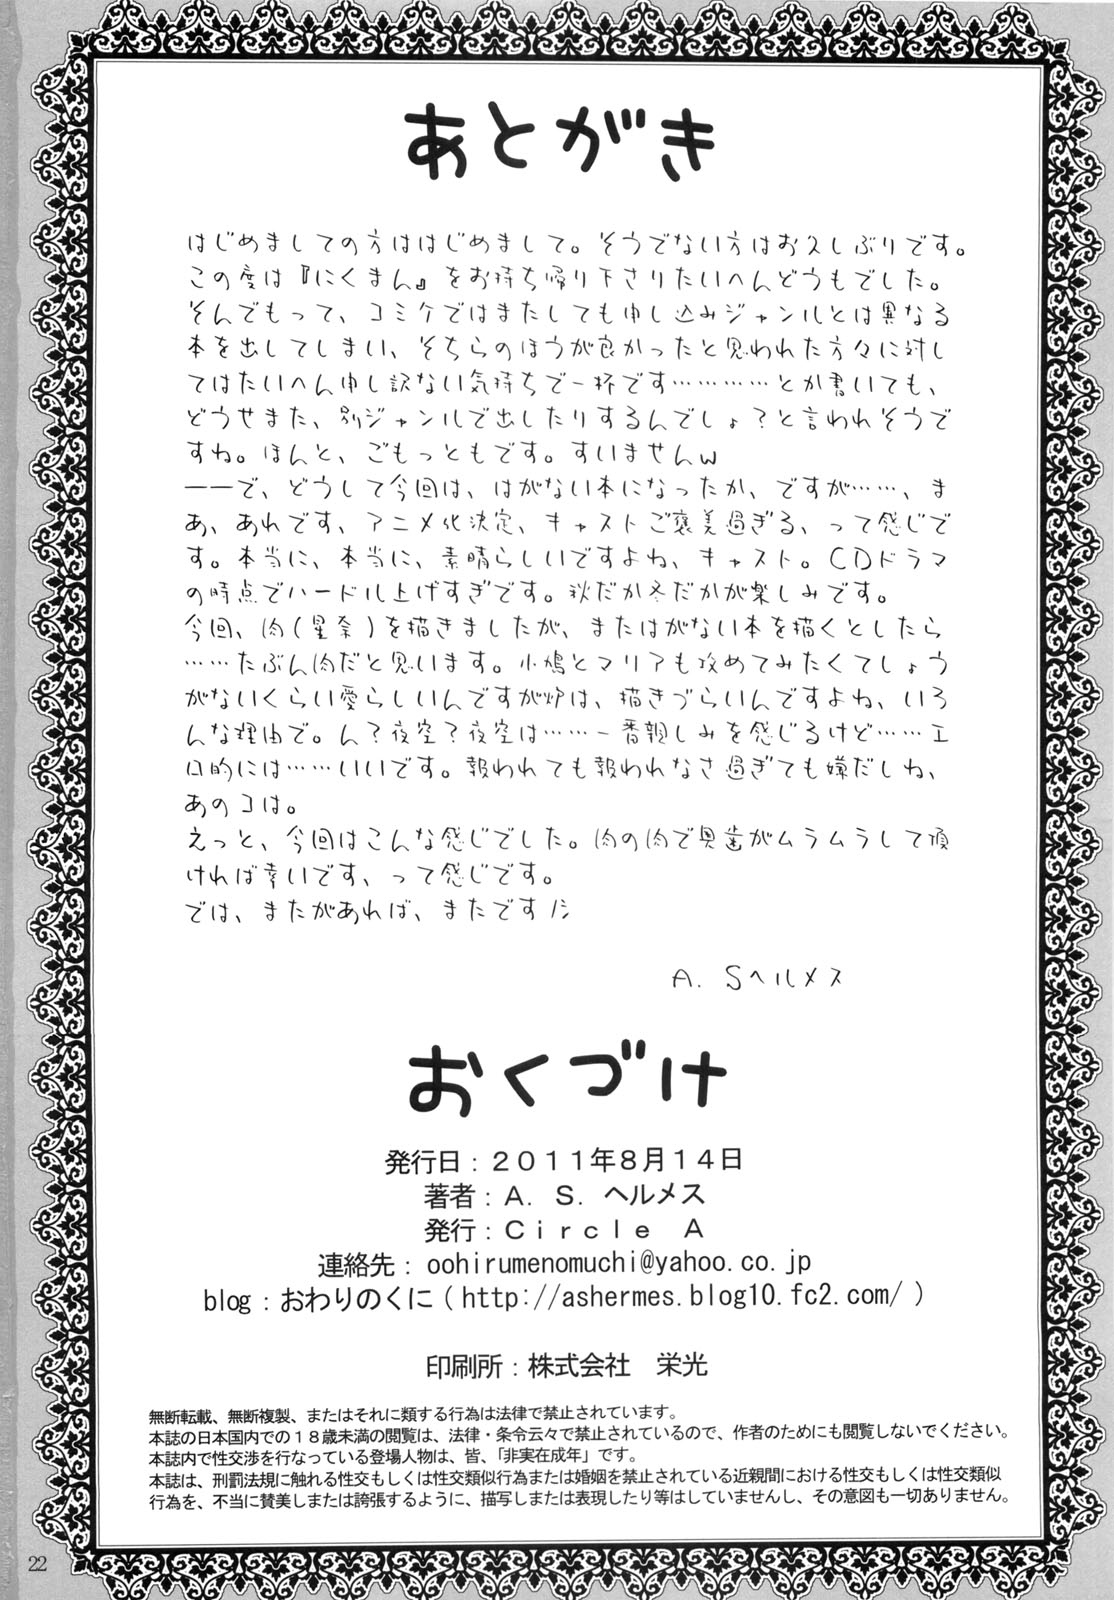 あとがき
はじめましての方ははじめまして。そうでない方はお久しぶりです。
この度は『にくまん』をお持ち帰り下さりたいへんどうもでした。
そんでもって、コミケではまたしても申し込みジャンルとは異なる
本を出してしまい、そちらのほうが良かったと思われた方々に対し
てはたいへん申し訳ない気持ちで一杯です…………とか書いても、
どうせまた、別ジャンルで出したりするんでしょ？と言われそうで
すね。ほんと、ごもっともです。すいませんw
――で、どうして今回は、はがない本になったか、ですが……、ま
あ、あれです、アニメ化決定、キャストご褒美過ぎる、って感じで
す。本当に、本当に、素晴らしいですよね、キャスト。CDドラマ
の時点でハードル上げすぎです。秋だか冬だかが楽しみです。
今回、肉(星奈)を描きましたが、またはがない本を描くとしたら
……たぶん肉だと思います。小鳩とマリアも攻めてみたくてしょう
がないくらい愛らしいんですが炉は、描きづらいんですよね、いろ
んな理由で。ん？夜空？夜空は……一番親しみを感じるけど……エ
ロ的には……いいです。報われても報われなさ過ぎても嫌だしね、
あのコは。
えっと、今回はこんな感じでした。肉の肉で奥歯がムラムラして頂
ければ幸いです、って感じです。
では、またがあれば、またです ﾉｼ
A. Sヘルメス
おくづけ
発行日：２０１１年８月１４日
著者：Ａ．Ｓ．ヘルメス
発行：Ｃｉｒｃｌｅ　Ａ
連絡先：oohirumenomuchi@yahoo.co.jp
blog：おわりのくに（http://ashermes.blog10.fc2.com/）
印刷所：株式会社　栄光
無断転載、無断複製、またはそれに類する行為は法律で禁止されています。
本誌の日本国内での１８歳未満の閲覧は、法律・条令云々で禁止されているので、作者のためにも閲覧しないでください。
本誌内で性交渉を行なっている登場人物は、皆、「非実在成年」です。
本誌は、刑罰法規に触れる性交もしくは性交類似行為または婚姻を禁止されている近親間における性交もしくは性交類似
行為を、不当に賛美しまたは誇張するように、描写しまたは表現したり等はしていませんし、その意図も一切ありません。
22